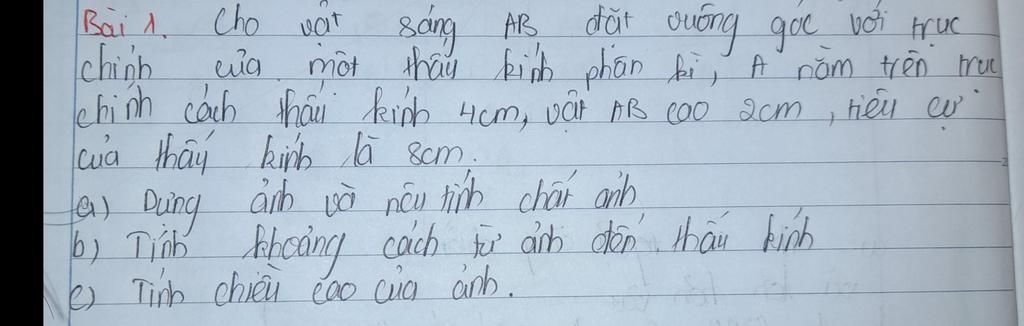 Bài 1. Cho vật sáng AB đặt vuông góc với trục
chính của một thấu kính phân kì, A nằm trên trục
chính cách thấu kính 4cm, vật AB cao 2cm, tiêu cự
của thấu kính là 8cm.
a) Dựng ảnh và nêu tính chất ảnh
b) Tính khoảng cách từ ảnh đến thấu kính
c) Tính chiều cao của ảnh.